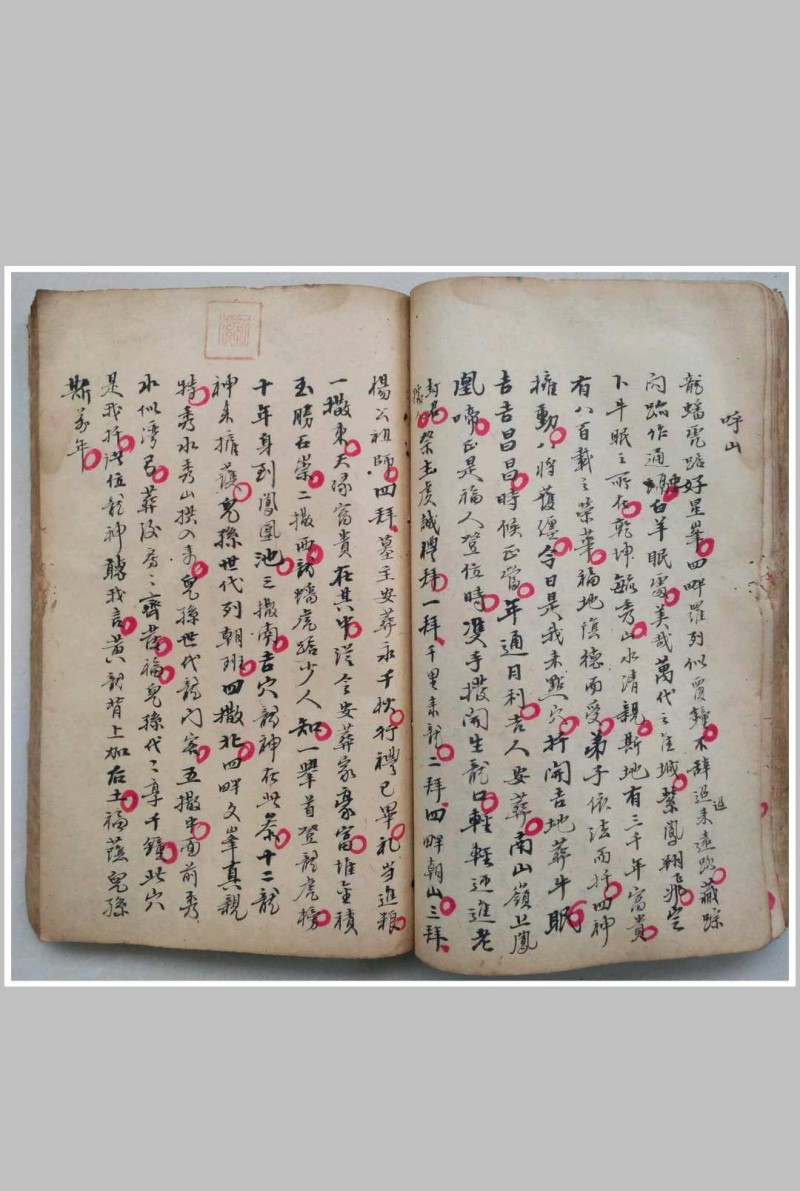 呼山
龍蟠虎踞好星峯四畔羅列似覆鐘不辞迢來遠路藏踪
問跡作通白羊眠處美哉萬代之佳城鸞鳳翔飛定
卜牛眠之所在乾坤毓秀山水清親斯地有三千年富貴
有八百載之榮華福地陰德而受弟子依法而扦四神
擁動八將護纏今日是我來點穴扦開吉地葬牛眠
吉吉昌昌時候正當年通月利吉人安葬南山嶺上鳳
凰啼正是福人登位時雙手撥開生龍口輕輕迎進老
封君榮土虔誠聘拜一拜千里來龍二拜四畔朝山三拜
楊公祖師四拜墓主安葬永千秋行禮已畢礼当進粮
一撒東天祿富貴在其中從今安葬家豪富堆金積
玉勝石崇二撒西龍蟠虎踞少人知一舉首登龍虎榜
十年身到鳳凰池三撒南吉穴龍神在此条十二龍
神来擁護兒孫世代列朝班四撒北四畔文峯真親
特秀水秀山拱入來兒孫世代龍門客五撒中面前秀
水似湾弓葬後房〻齊發福兒孫代〻享千鍾此穴
是我扦法位龍神聽我言黄龍背上加后土福蔭兒孫
斯萬年